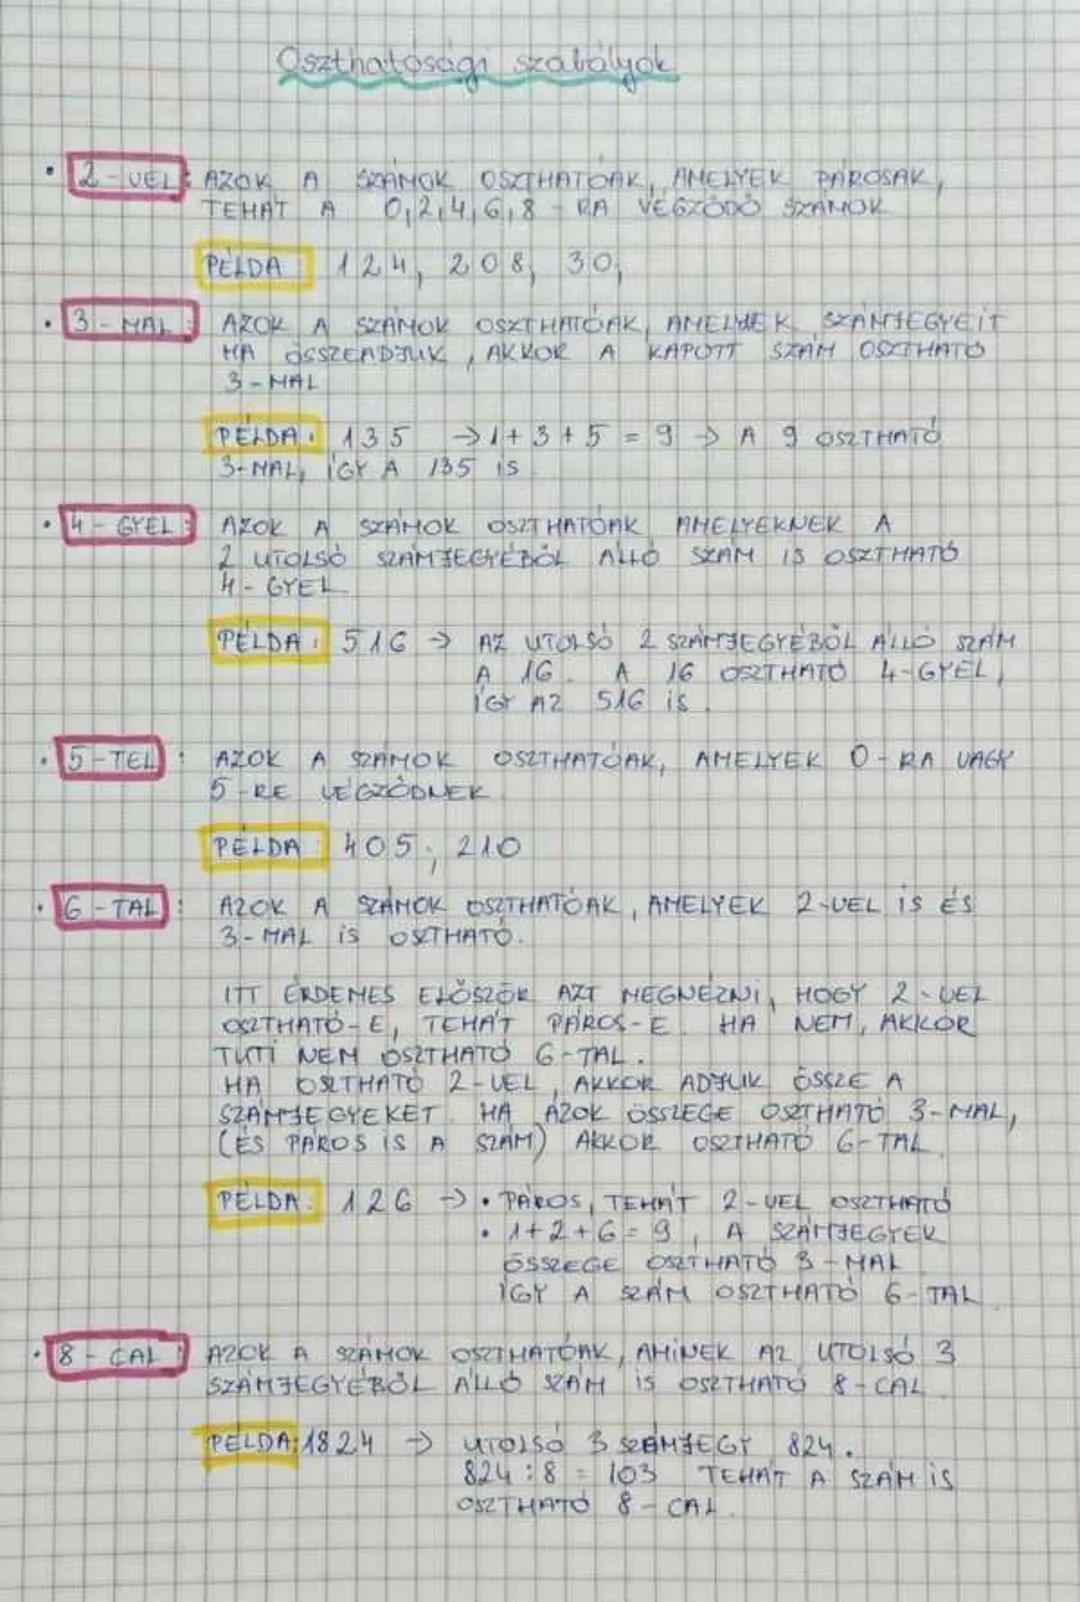 Oszthatósági szabályok
• 2-VEL: AZOK A SZÁMOK OSZTHATÓAK, AMELYEK PÁROSAK,
TEHÁT A 0,2,4,6,8 - RA VÉGZŐDŐ SZÁMOK
PÉLDA: 124, 208, 30,
• 3-MAL: AZOK A SZÁMOK OSZTHATÓAK, AMELYEK SZÁMJEGYEIT
HA ÖSSZEADJUK, AKKOR A KAPOTT SZÁM OSZTHATÓ
3-MAL
PÉLDA: 135 → 1+3+5 = 9 → A 9 OSZTHATÓ
3-MAL, ÍGY A 135 IS.
• 4-GYEL: AZOK A SZÁMOK OSZTHATÓAK AMELYEKNEK A
2 UTOLSÓ SZÁMJEGYÉBŐL ÁLLÓ SZÁM IS OSZTHATÓ
4-GYEL
PÉLDA: 516 → AZ UTOLSÓ 2 SZÁMJEGYÉBŐL ÁLLÓ SZÁM
A 16. A 16 OSZTHATÓ 4-GYEL,
ÍGY AZ 516 IS.
• 5-TEL: AZOK A SZÁMOK OSZTHATÓAK, AMELYEK 0-RA VAGY
5-RE VÉGZŐDNEK
PÉLDA: 405; 210
• 6-TAL: AZOK A SZÁMOK OSZTHATÓAK, AMELYEK 2-VEL IS ÉS
3-MAL IS OSZTHATÓ.
ITT ÉRDEMES ELŐSZÖR AZT MEGNÉZNI, HOGY 2-VEL
OSZTHATÓ-E, TEHÁT PÁROS-E. HA NEM, AKKOR
TUTI NEM OSZTHATÓ 6-TAL.
HA OSZTHATÓ 2-VEL, AKKOR ADJUK ÖSSZE A
SZÁMJEGYEKET. HA AZOK ÖSSZEGE OSZTHATÓ 3-MAL,
(ÉS PÁROS IS A SZÁM) AKKOR OSZTHATÓ 6-TAL.
PÉLDA: 126 → • PÁROS, TEHÁT 2-VEL OSZTHATÓ
• 1+2+6=9, A SZÁMJEGYEK
ÖSSZEGE OSZTHATÓ 3-MAL
ÍGY A SZÁM OSZTHATÓ 6-TAL
• 8-CAL: AZOK A SZÁMOK OSZTHATÓAK, AMINEK AZ UTOLSÓ 3
SZÁMJEGYÉBŐL ÁLLÓ SZÁM IS OSZTHATÓ 8-CAL.
PÉLDA: 1824 → UTOLSÓ 3 SZÁMJEGY 824.
824 : 8 = 103 TEHÁT A SZÁM IS
OSZTHATÓ 8-CAL.